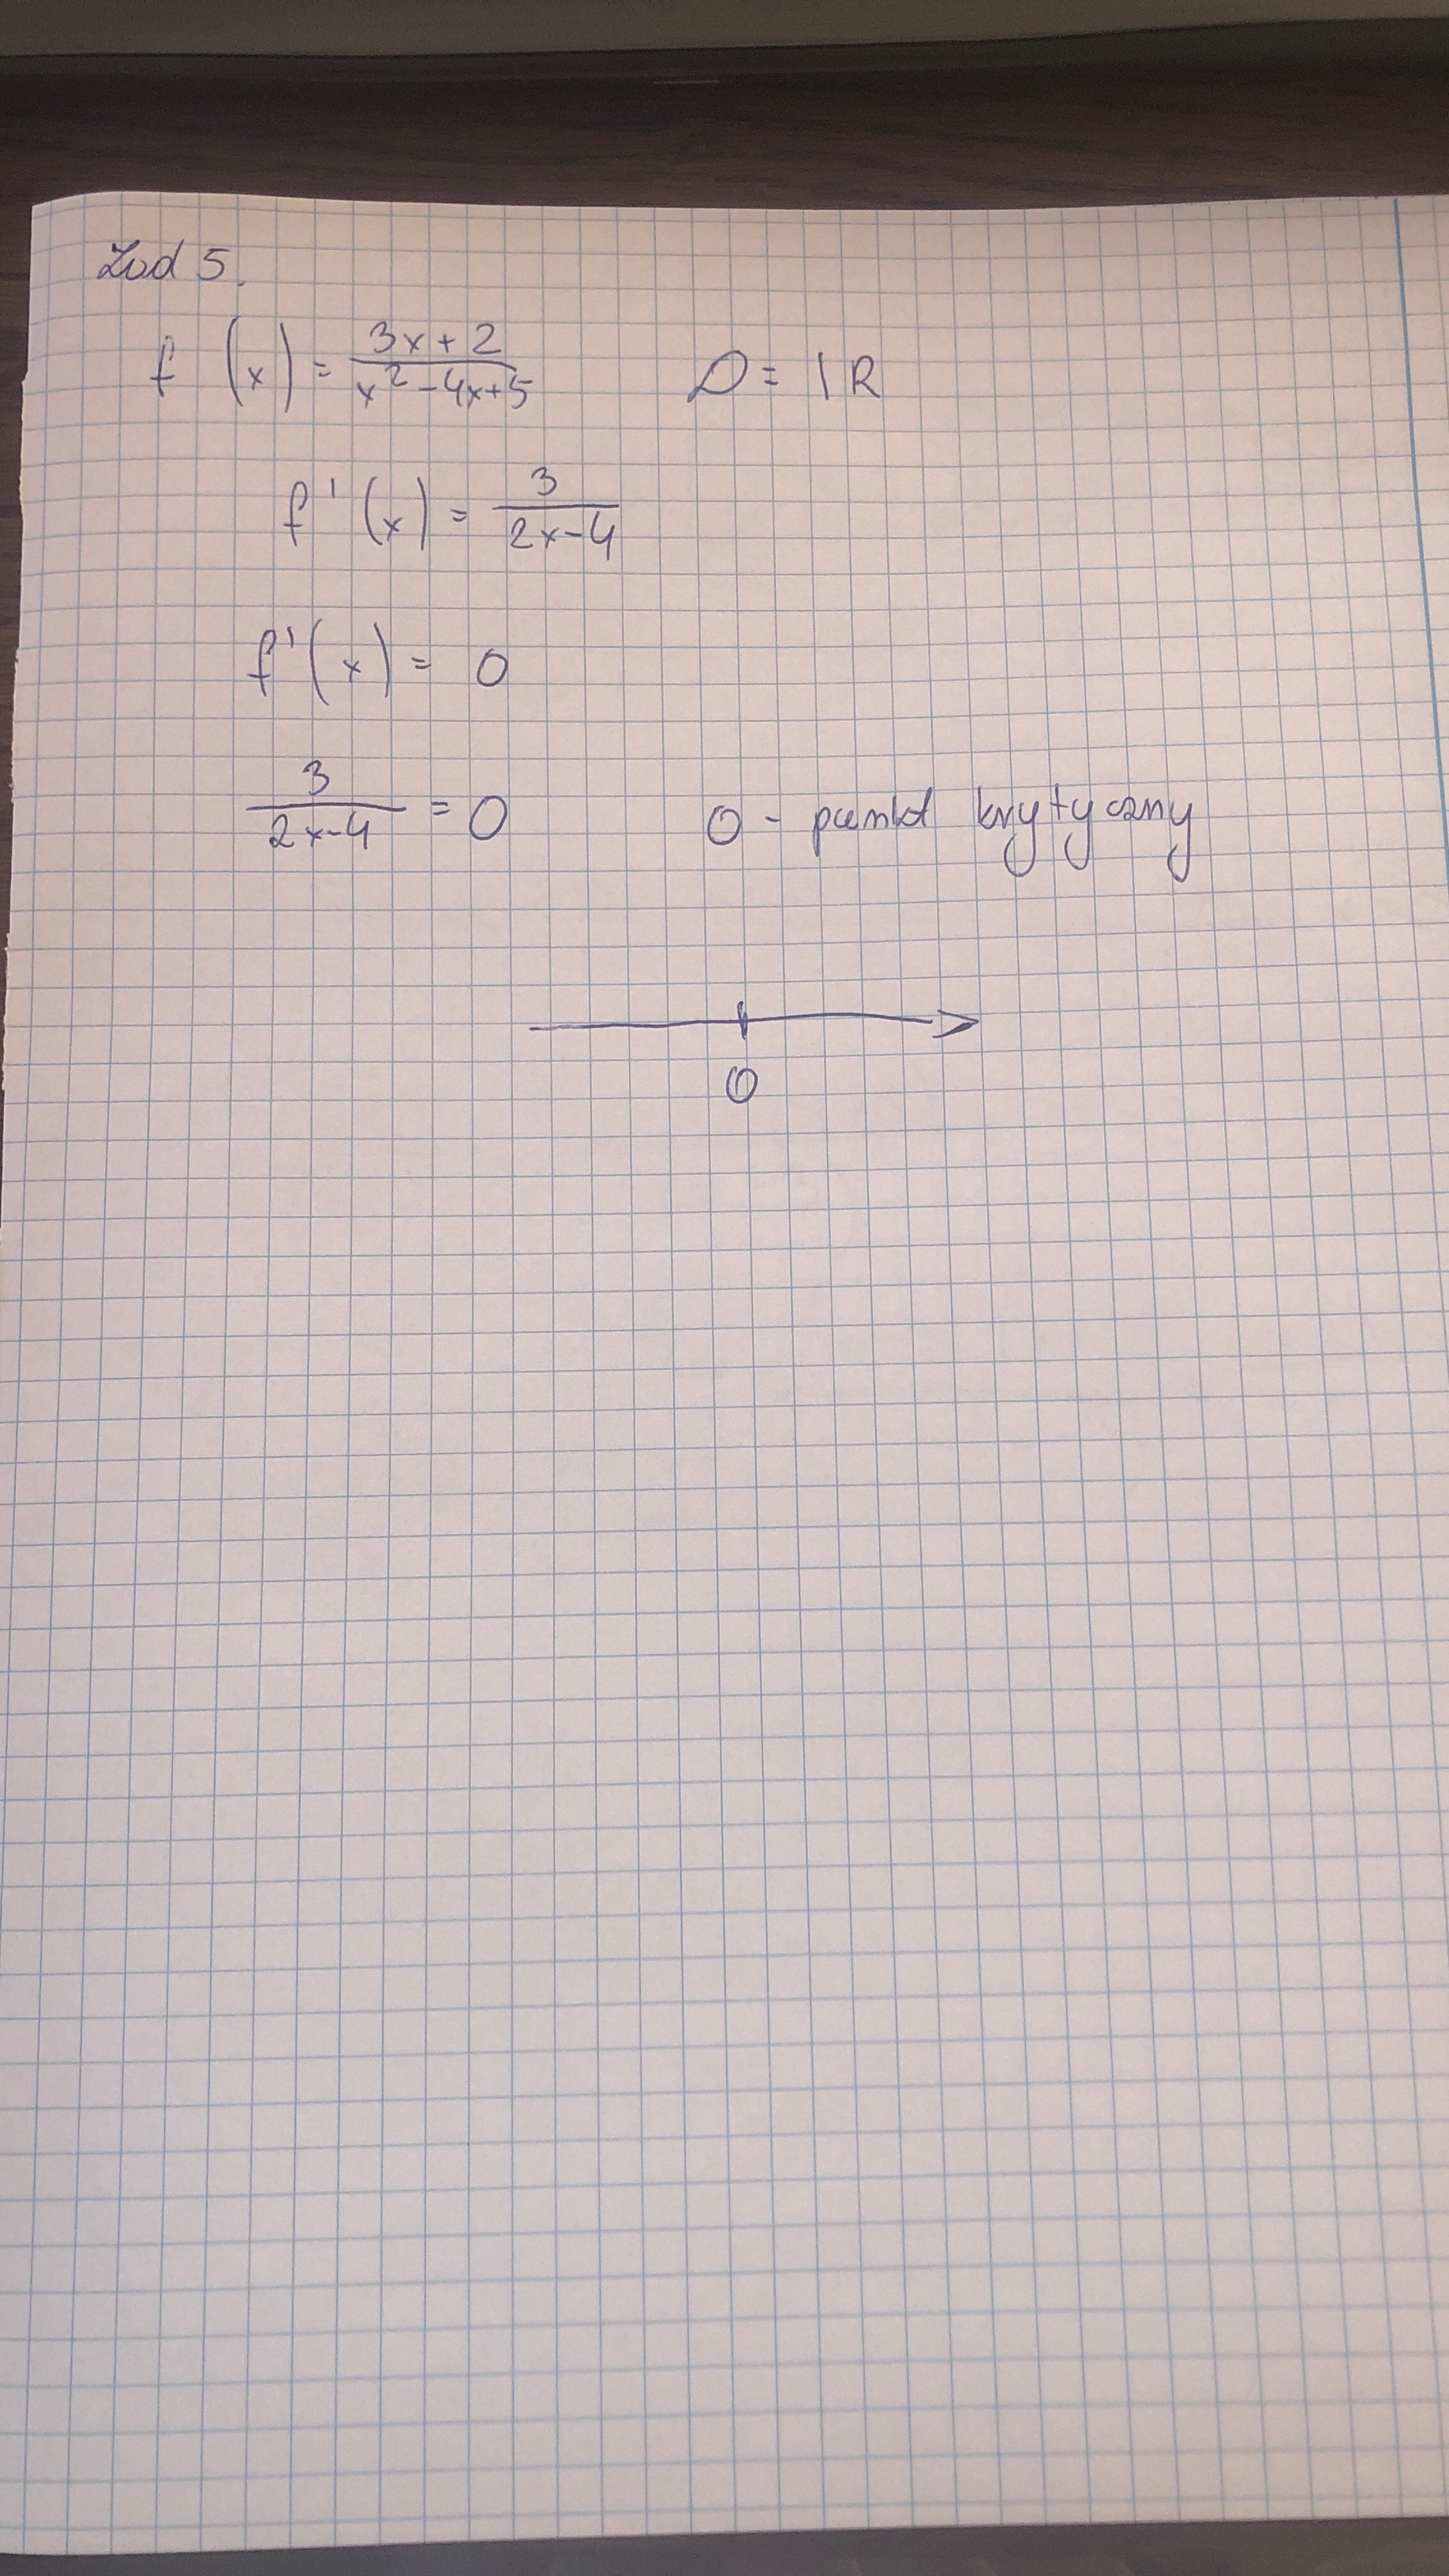 Zad 5.
f (x) = \frac{3x+2}{x^2-4x+5} D = IR
f'(x) = \frac{3}{2x-4}
f'(x) = 0
\frac{3}{2x-4} = 0 0 - punkt krytyczny
0